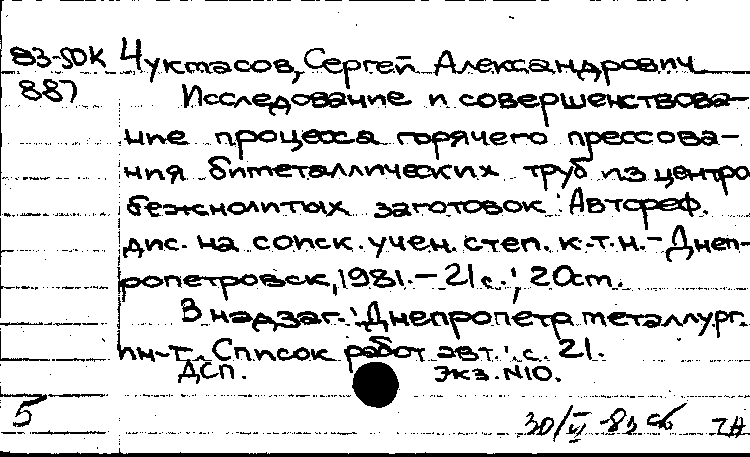 83-5ДК Чуктасов, Сергей Александрович
887 Исследование и совершенствова-
ние процесса горячего прессова-
ния биметаллических труб из центро
бежнолитых заготовок : Автореф.
дис. на соиск. учен. степ. к.т.н. - Днеп-
ропетровск, 1981. - 21 с. ; 20 cm.
В надзаг.: Днепропетр металлург.
ин-т. Список работ авт.: с. 21.
ДСП. Экз. N10.
5 30/VI-83